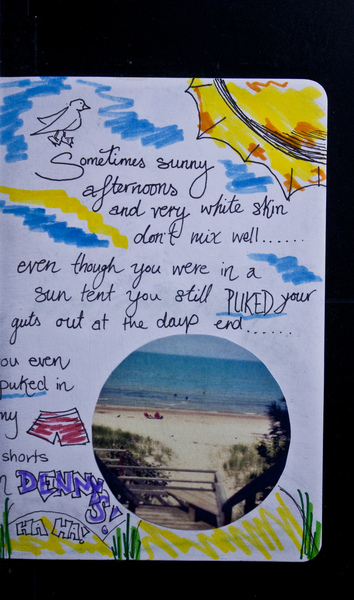 Sometimes sunny
afternoons
and very white skin
don't mix well......
even though you were in a
sun tent you still PUKED your
guts out at the days end.......
ou even
puked in
my
shorts
DENNYS!
HA HA!